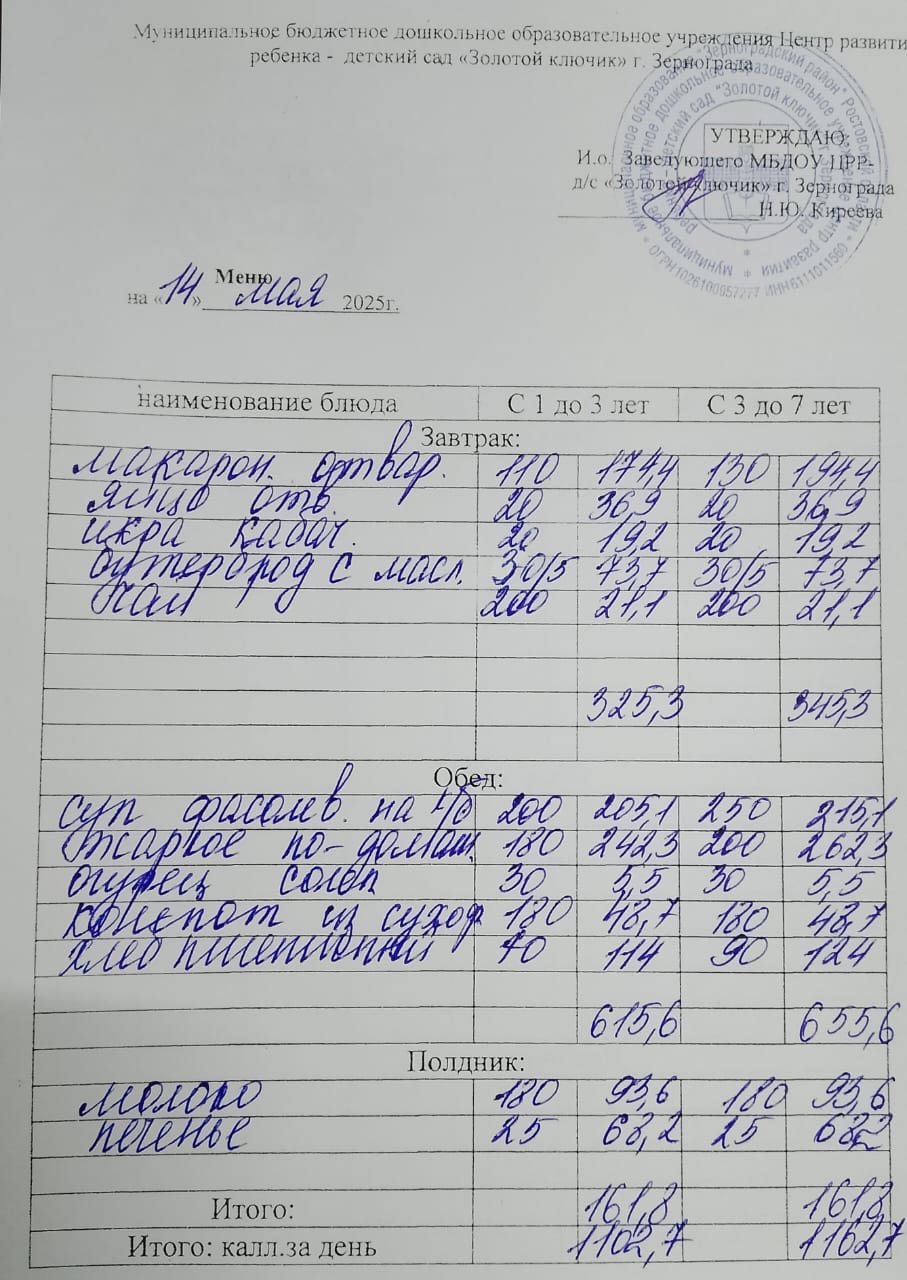 Муниципальное бюджетное дошкольное образовательное учреждения Центр развити
ребенка - детский сад «Золотой ключик» г. Зернограда
УТВЕРЖДАЮ:
И.о. Заведующего МБДОУ ЦРР-
д/с «Золотой ключик» г. Зернограда
Н.Ю. Киреева
ОГРН 1026100957277 ИНН 6111011560
Меню
на «14» мая 2025г.
наименование блюда С 1 до 3 лет С 3 до 7 лет
Завтрак:
макарон. отвар. 110 174,4 130 194,4
яйцо отв. 20 36,9 20 36,9
икра кабач. 20 19,2 20 19,2
бутерброд с масл. 30/5 73,7 30/5 73,7
чай 200 21,1 200 21,1
325,3 345,3
Обед:
суп фасолев. на к/б 200 205,1 250 215,1
жаркое по-домаш. 180 242,3 200 262,3
огурец солен 30 5,5 30 5,5
компот из сухоф 180 48,7 180 48,7
хлеб пшеничный 70 114 90 124
615,6 655,6
Полдник:
молоко 180 93,6 180 93,6
печенье 25 68,2 25 68,2
Итого: 161,8 161,8
Итого: калл.за день 1102,7 1162,7